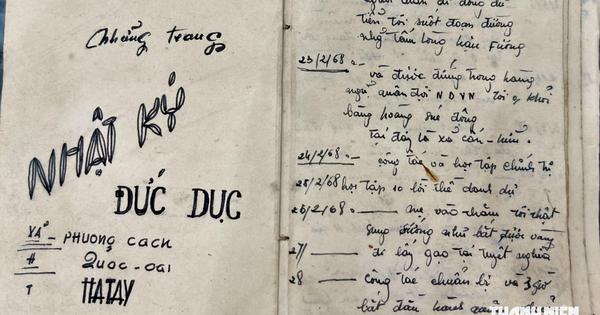 những trang
NHẬT KÝ
ĐỨC DỤC
XÃ PHƯỢNG CÁCH
H QUỐC-OAI
T HATAY
người quân di động dư
tiễn tôi suốt đoạn đường
những tấm lòng hậu phương
23/2/68
và được đứng trong hàng
ngũ quân đội NDVN tôi khỏi
bàng hoàng
tại đây là xã cần-kiệm
24/2/68 công tác và học tập chính trị
25/2/68 học tập 10 lời thề danh dự
26/2/68 mẹ vào thăm tôi thật
sung sướng như bắt được vàng
27/ đi lấy gạo tại tuyết nghĩa
28 công tác chuẩn bị và 3 giờ
bắt đầu hành quân
THANH NIÊN